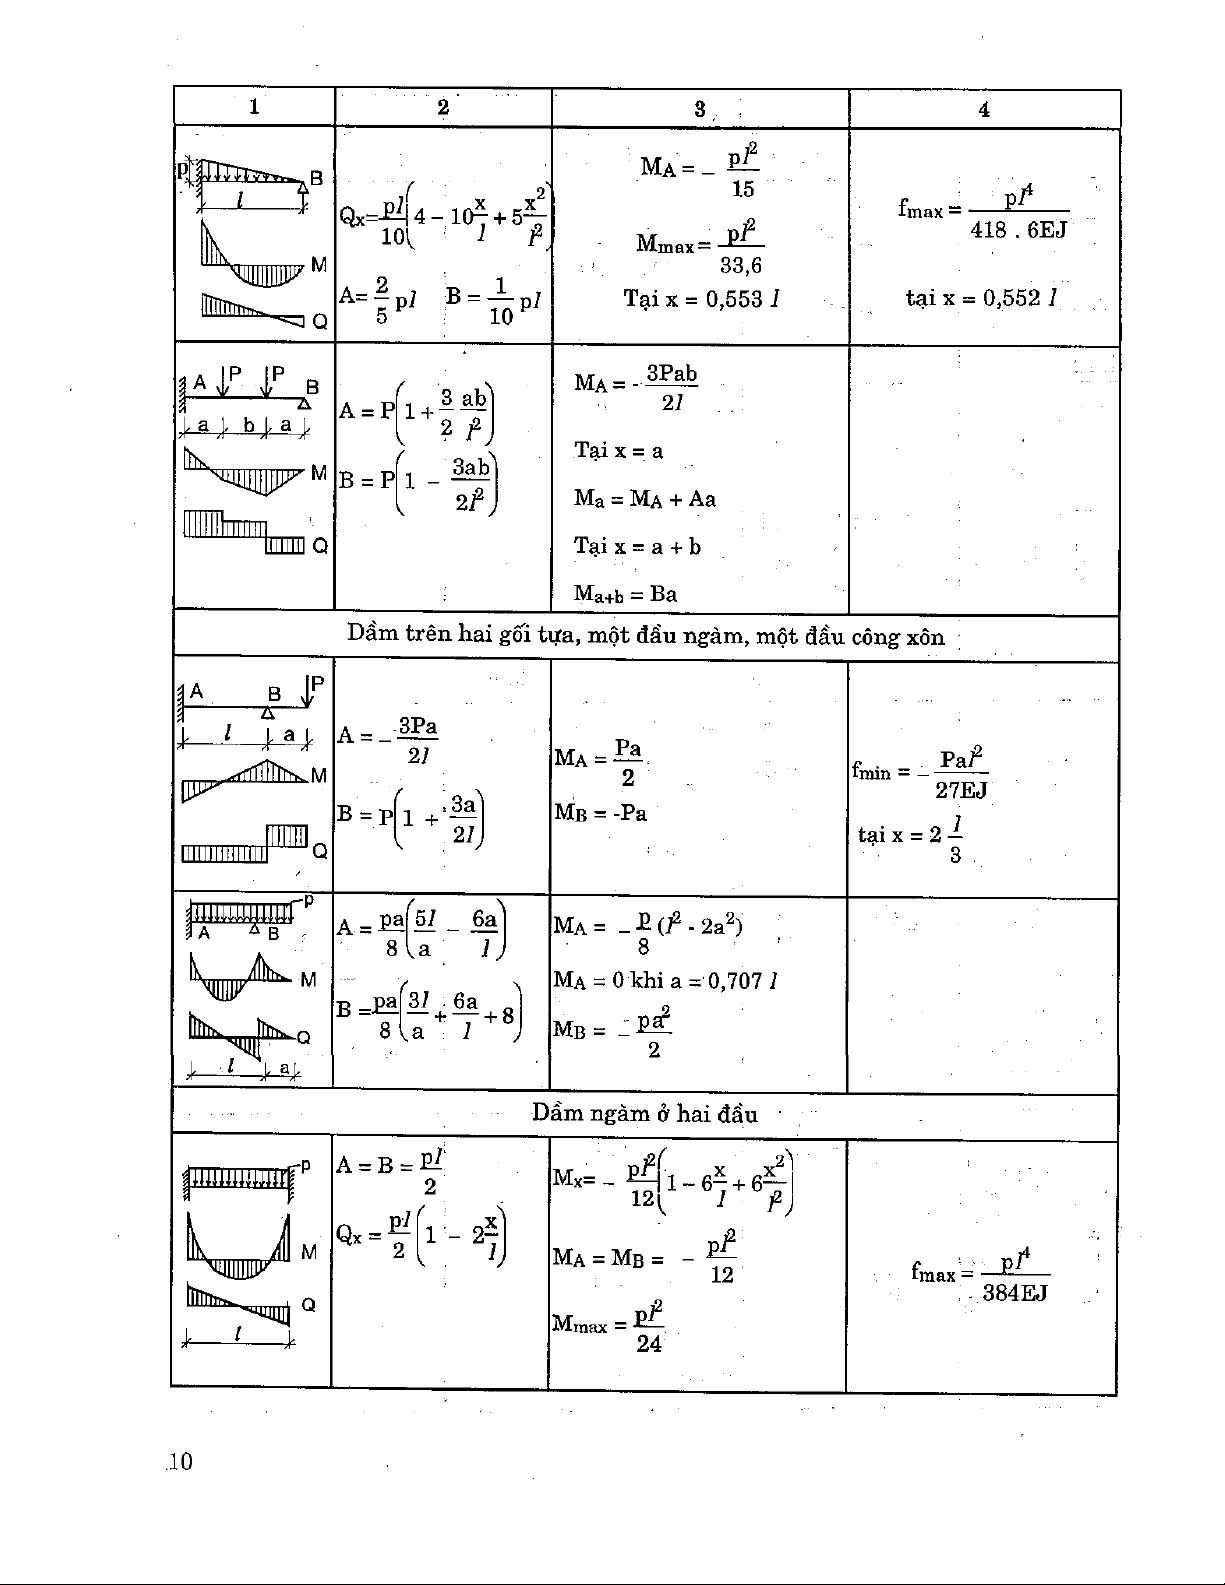 1 2 3 4
p B
l
M
Q
Qx = pl/10 (4 − 10 x/l + 5 x²/l²)
A = 2/5 pl B = 1/10 pl
MA = − pl²/15
Mmax = pl²/33,6
Tại x = 0,553 l
fmax = pl⁴/418 . 6EJ
tại x = 0,552 l
A P P B
a b a
M
Q
A = P(1 + 3/2 ab/l²)
B = P(1 − 3ab/2l²)
MA = - 3Pab/2l
Tại x = a
Ma = MA + Aa
Tại x = a + b
Ma+b = Ba
Dầm trên hai gối tựa, một đầu ngàm, một đầu công xôn
A B P
l a
M
Q
A = − 3Pa/2l
B = P(1 + 3a/2l)
MA = Pa/2
MB = -Pa
fmin = − Pal²/27EJ
tại x = 2 l/3
p
A B
M
Q
l a
A = pa/8 (5l/a − 6a/l)
B = pa/8 (3l/a + 6a/l + 8)
MA = − p/8 (l² - 2a²)
MA = 0 khi a = 0,707 l
MB = − pa²/2
Dầm ngàm ở hai đầu
p
M
Q
l
A = B = pl/2
Qx = pl/2 (1 − 2 x/l)
Mx = − pl²/12 (1 − 6 x/l + 6 x²/l²)
MA = MB = − pl²/12
Mmax = pl²/24
fmax = pl⁴/384EJ
10